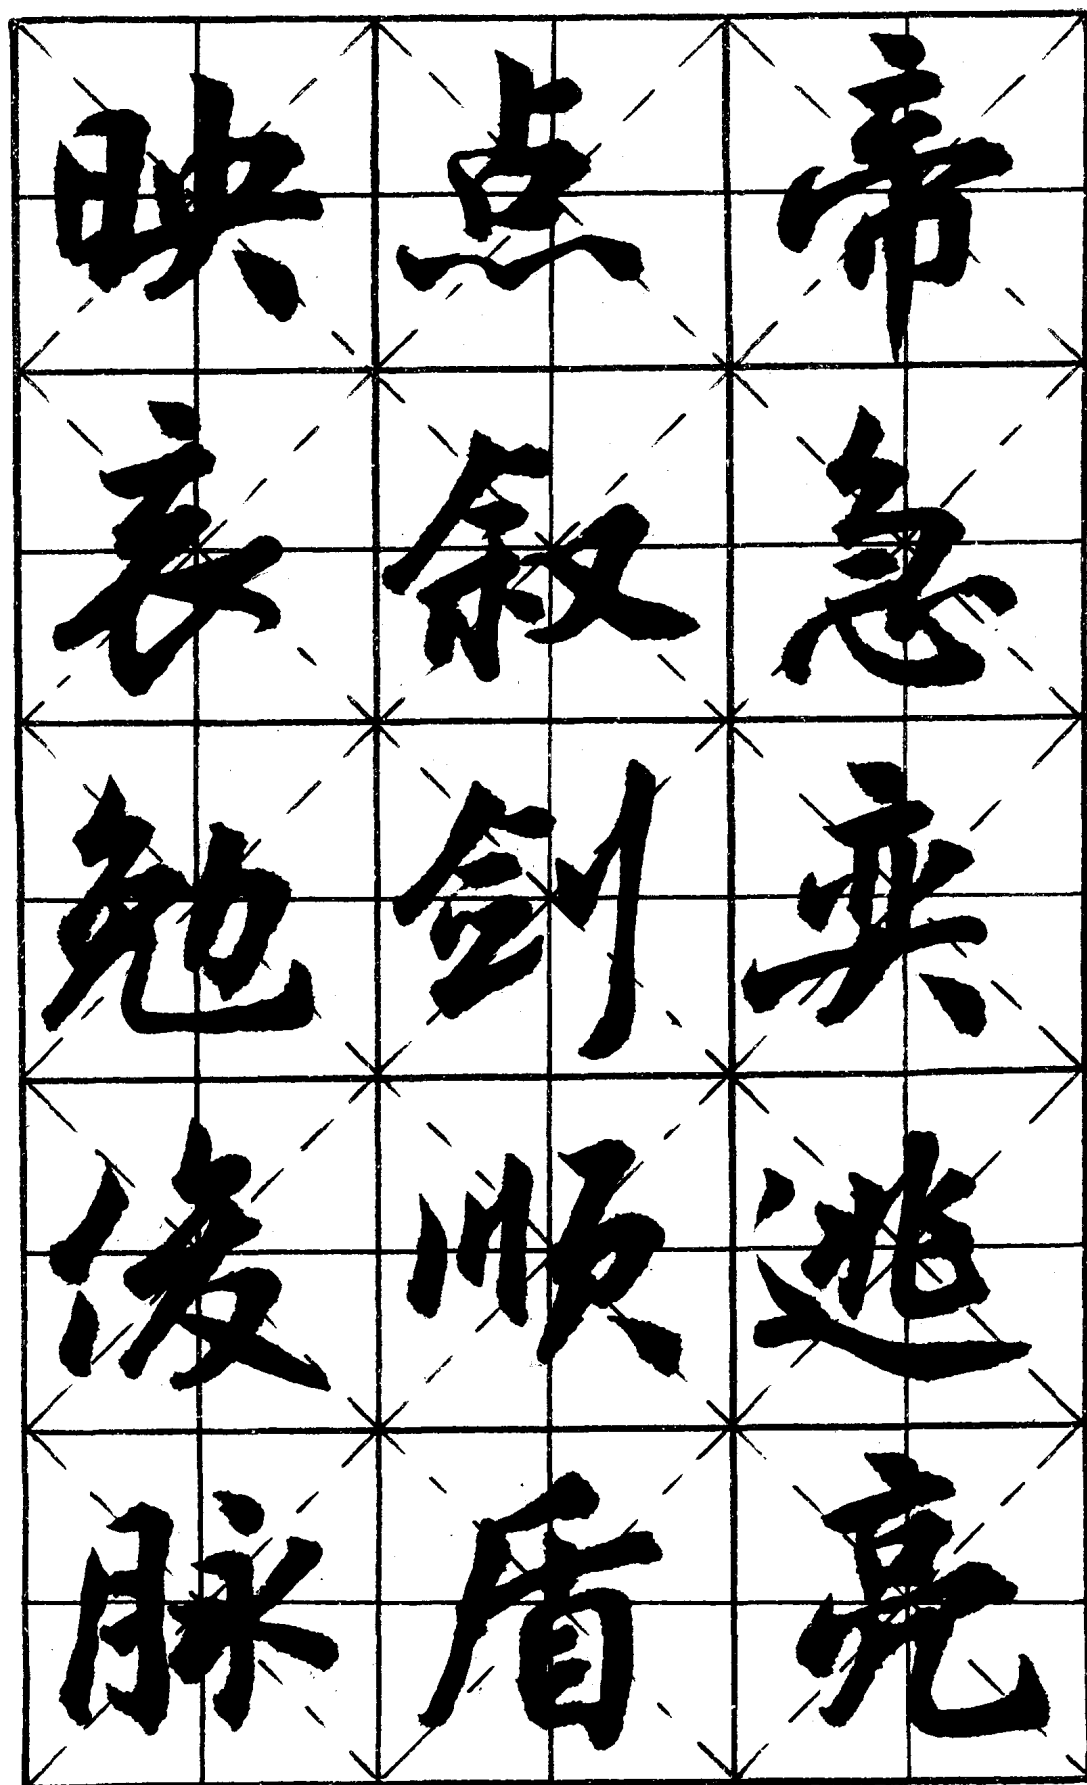 帝急奕逃亮
点叙剑顺盾
映哀勉俊脉